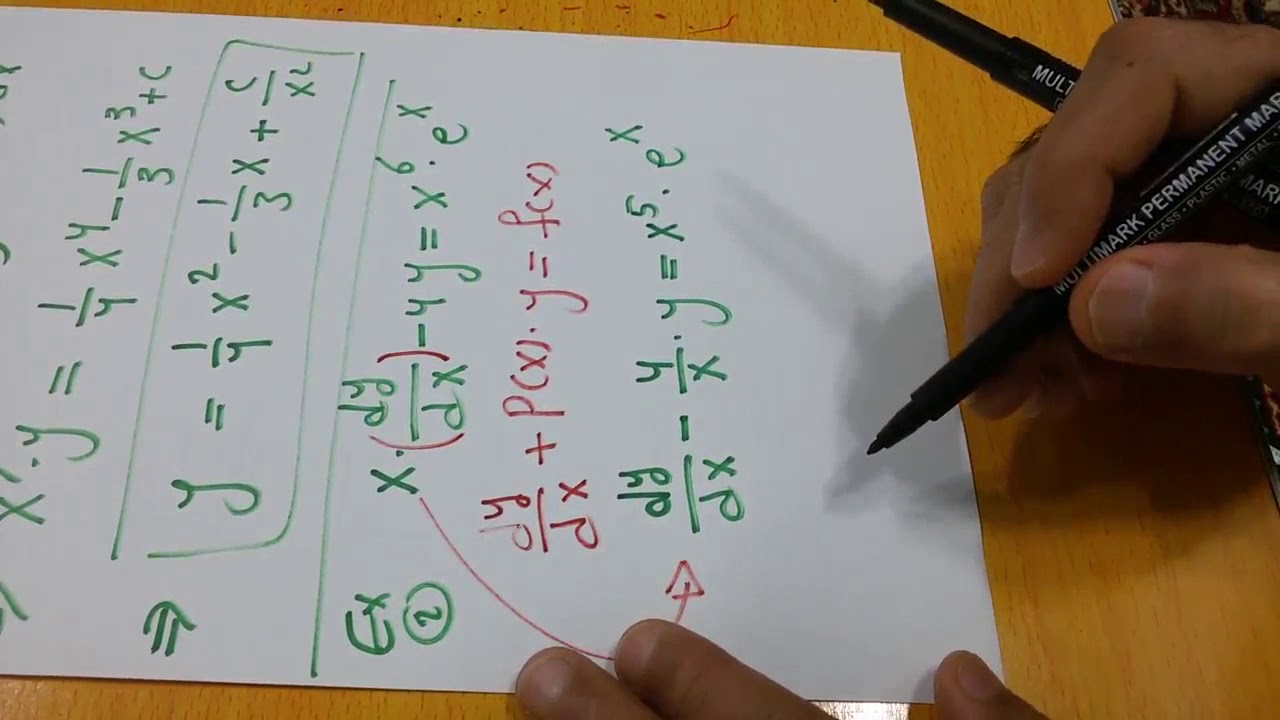 x².y = 1/4 x⁴ - 1/3 x³ + c
⇒ y = 1/4 x² - 1/3 x + c/x²
Ex ② x.(dy/dx) - 4y = x⁶.eˣ
dy/dx + P(x).y = f(x)
dy/dx - 4/x.y = x⁵.eˣ
MULTIMARK PERMANENT MAR
GLASS - PLASTIC - METAL
MULT
MARK